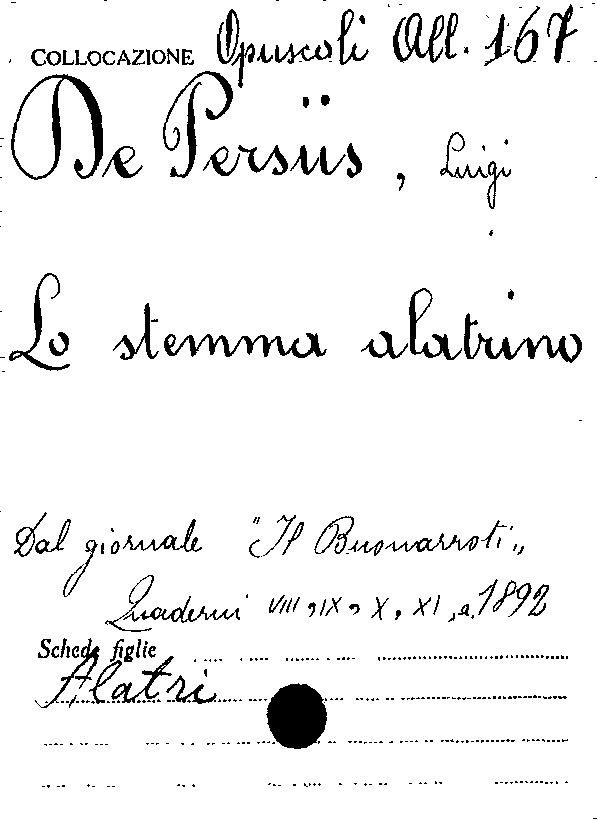 COLLOCAZIONE Opuscoli All. 167
De Persiis, Luigi
Lo stemma alatrino
Dal giornale "Il Buonarroti„
Quaderni VIII, IX, X, XI, a. 1892
Schede figlie
Alatri